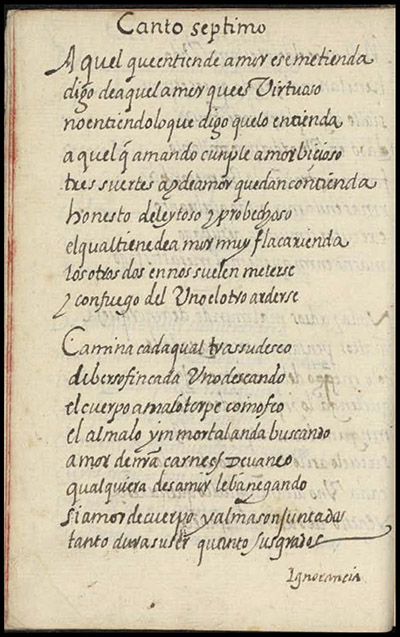 Canto septimo
Aquel que entiende amor ese me tienda
digo de aquel amor que es Virtuoso
no entiendo lo que digo que lo entienda
a quel q̃ amando cunple amor bicioso
tres suertes ay de amor que dan contienda
honesto deleytoso y probechoso
el qual tiene de amur muy flaca rienda
los otros dos en nos suelen meterse
y con fuego del Uno el otro arderse
Camina cada qual tras su deseo
diberso fin cada Uno descando
el cuerpo a malo torpe coinofeo
el alma lo ynmortal anda buscando
amor de mr̃a carne es Devaneo
qualquiera desamir le ba negando
si amor de cuerpo y alma son juntados
tanto dura su ser quanto sus grados
Ignorancia